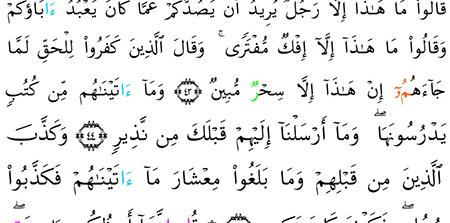 قَالُوا۟ مَا هَـٰذَآ إِلَّا رَجُلٌ يُرِيدُ أَن يَصُدَّكُمْ عَمَّا كَانَ يَعْبُدُ ءَابَآؤُكُمْ
وَقَالُوا۟ مَا هَـٰذَآ إِلَّآ إِفْكٌ مُّفْتَرًى ۚ وَقَالَ ٱلَّذِينَ كَفَرُوا۟ لِلْحَقِّ لَمَّا
جَآءَهُمُۥٓ إِنْ هَـٰذَآ إِلَّا سِحْرٌ مُّبِينٌ ﴿٤٣﴾ وَمَآ ءَاتَيْنَـٰهُم مِّن كُتُبٍ
يَدْرُسُونَهَا ۖ وَمَآ أَرْسَلْنَآ إِلَيْهِمْ قَبْلَكَ مِن نَّذِيرٍ ﴿٤٤﴾ وَكَذَّبَ
ٱلَّذِينَ مِن قَبْلِهِمْ وَمَا بَلَغُوا۟ مِعْشَارَ مَآ ءَاتَيْنَـٰهُمْ فَكَذَّبُوا۟